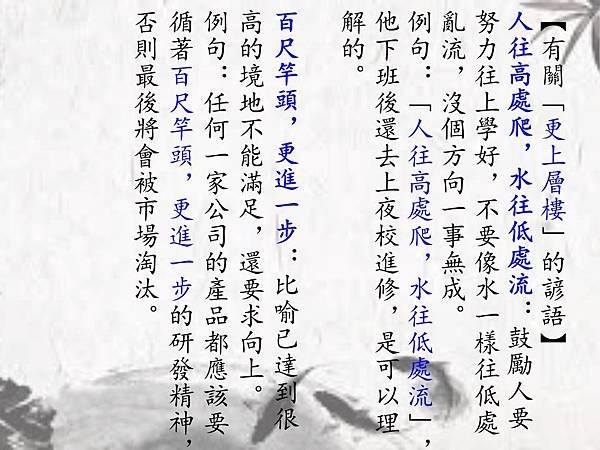 【有關「更上層樓」的諺語】
人往高處爬，水往低處流：鼓勵人要
努力往上學好，不要像水一樣往低處
亂流，沒個方向一事無成。
例句：「人往高處爬，水往低處流」，
他下班後還去上夜校進修，是可以理
解的。
百尺竿頭，更進一步：比喻已達到很
高的境地不能滿足，還要求向上。
例句：任何一家公司的產品都應該要
循著百尺竿頭，更進一步的研發精神，
否則最後將會被市場淘汰。